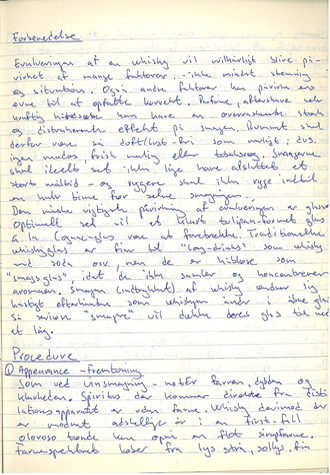 Forberedelse
Evalueringen af en whisky vil uvilkårligt blive på-
virket af mange faktorer - ikke mindst stemning
og situation. Også andre faktorer kan påvirke ens
evne til at opfatte korrekt. Parfume, aftershave og
kraftig hårsæbe kan have en overraskende stærk
og distraherende effekt på smagen. Rummet skal
derfor være så duft/lugt-fri som muligt; dvs.
ingen mados, frisk maling eller tobaksrøg. Smagerne
skal ideelt set ikke lige have afsluttet et
stort måltid - og rygere skal ikke ryge indtil
en halv time før selve smagningen.
Den mindst vigtigste påvirkning af evalueringen er glasset
Optimalt set vil et klart tulipanformet glas
à la Cognac-glas være at foretrække. Traditionelle
whiskyglas er fine til "long-drinks" som whisky
and soda osv. men de er håbløse som
"smagsglas" idet de ikke samler og koncentrerer
aromaen. Smagen (indtrykket) af whisky ændrer sig
hastigt efterhånden som whiskyen ånder i åbne glas
Så seriøse "smagere" vil dække deres glas til med
et låg.
Procedure
① Appearance - Fremtoning
Som ved vinsmagning - notér farven, dybden og
klarheden. Spiritus der kommer direkte fra disti
lationsapparatet er uden farve. Whisky derimod der
er modnet adskillige år i en first-fill
oloroso tønde kan opnå en flot sirupfarve.
farvespektret løber fra lys strå, sollys, fin